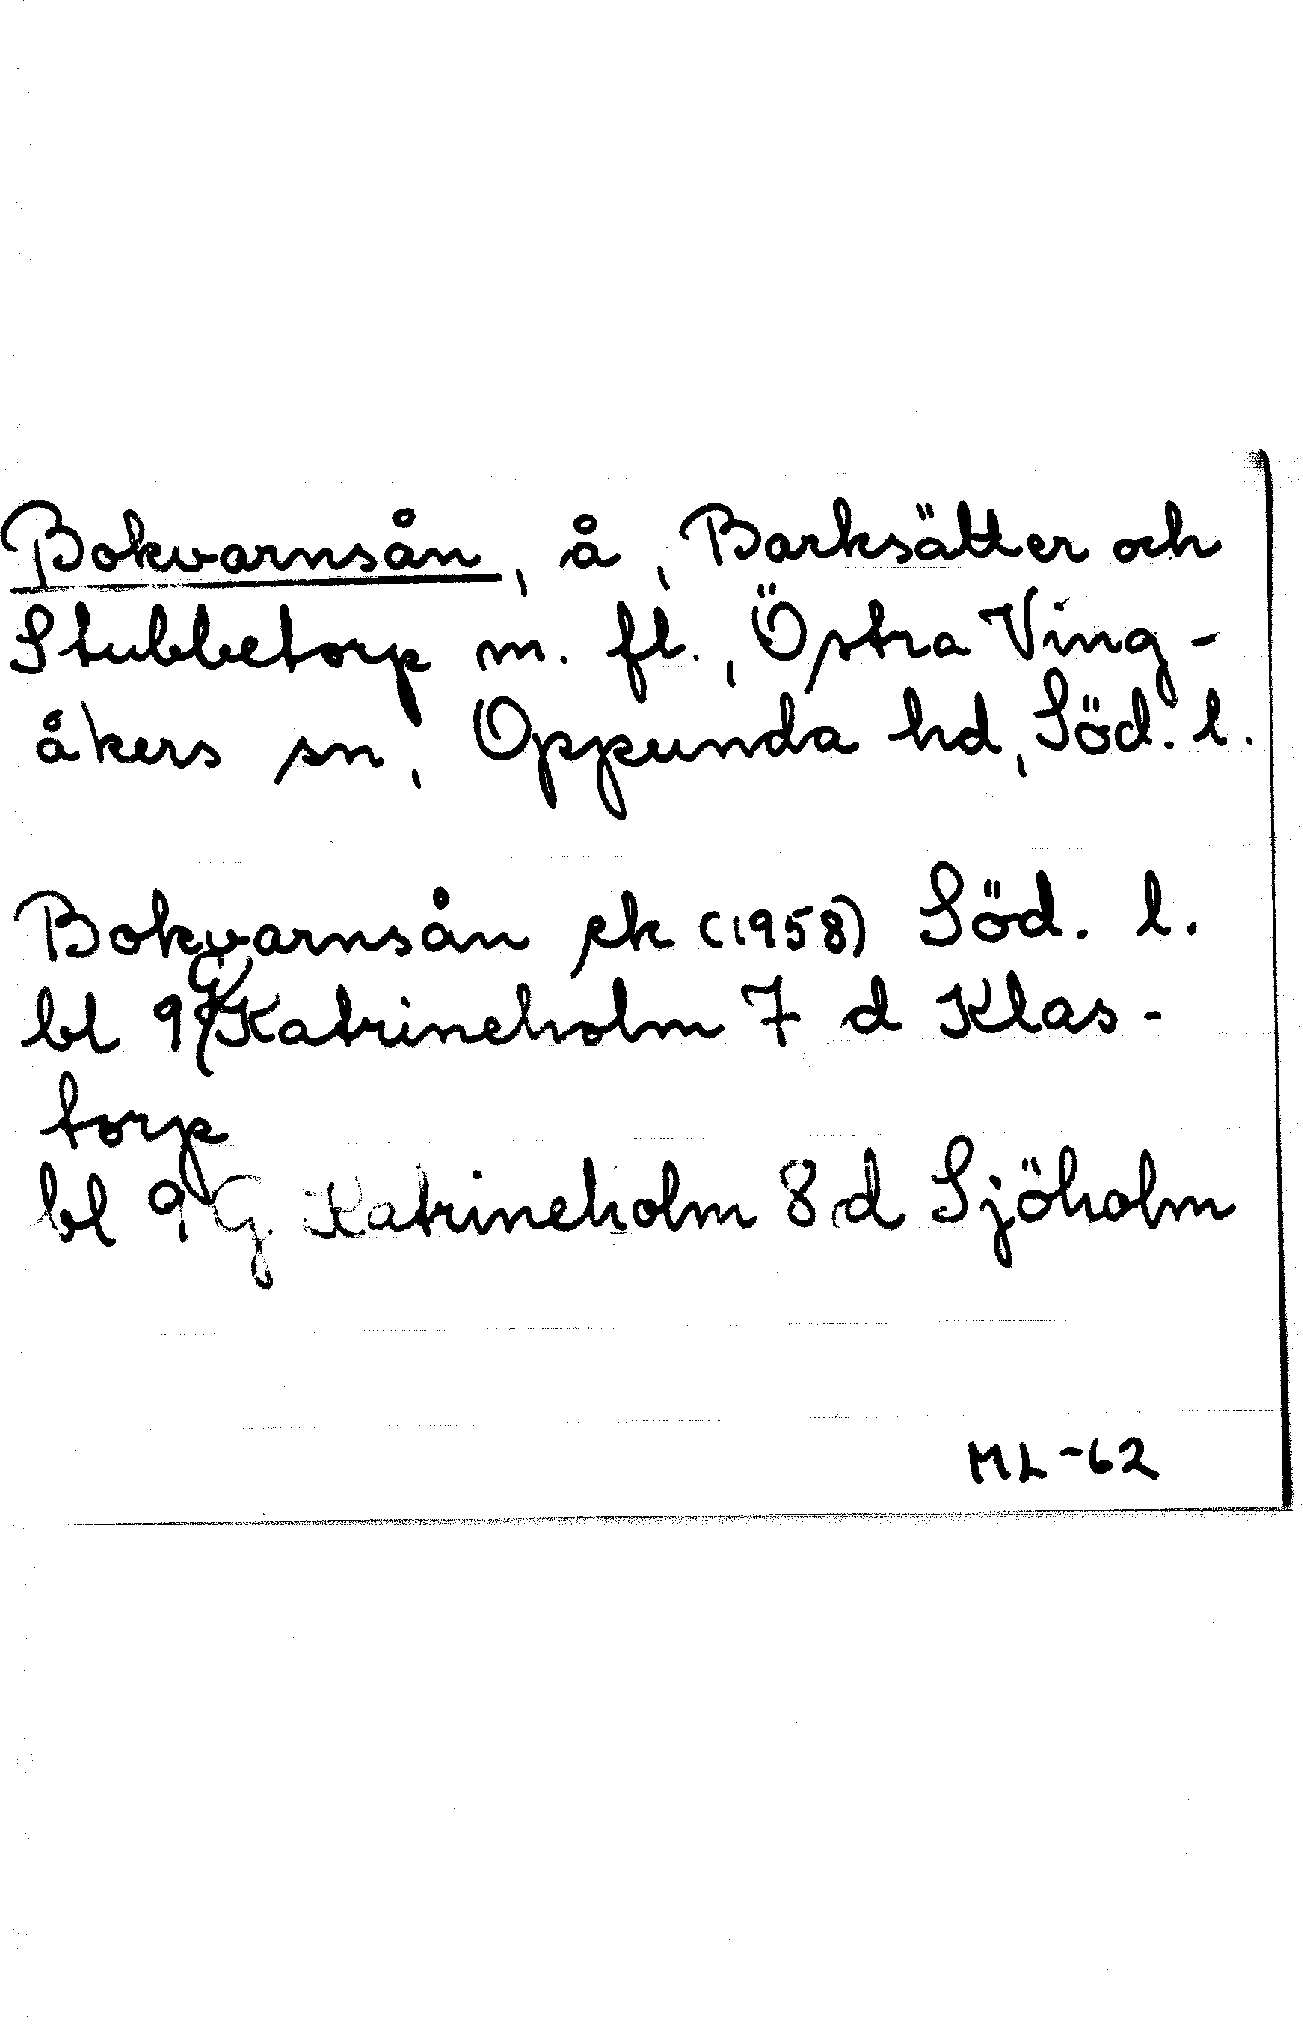 Bokvarnsån, å, Barksätter och
Stubbetorp m. fl., Östra Ving-
åkers sn, Oppunda hd, Söd. l.
Bokvarnsån ek (1958) Söd. l.
bl 9 G Katrineholm 7 d Klas-
torp
bl 9 G Katrineholm 8 d Sjöholm
ML-62